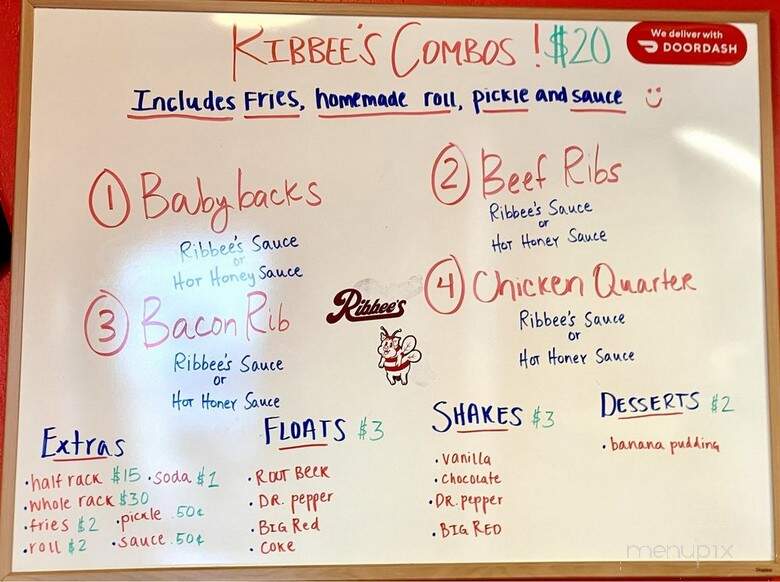 KIBBEE'S COMBOS ! $20
We deliver with
DOORDASH
Includes Fries, homemade roll, pickle and sauce
1 Babybacks
Ribbee's Sauce
or
Hot Honey Sauce
2 Beef Ribs
Ribbee's Sauce
or
Hot Honey Sauce
3 Bacon Rib
Ribbee's Sauce
or
Hot Honey Sauce
Ribbee's
4 Chicken Quarter
Ribbee's Sauce
or
Hot Honey Sauce
Extras
• half rack $15 • soda $1
• whole rack $30
• fries $2 • pickle .50¢
• roll $2 • sauce .50¢
FLOATS $3
• ROOT BEER
• DR. pepper
• BIG Red
• COKE
SHAKES $3
• vanilla
• chocolate
• DR. pepper
• BIG RED
DESSERTS $2
• banana pudding
menupix